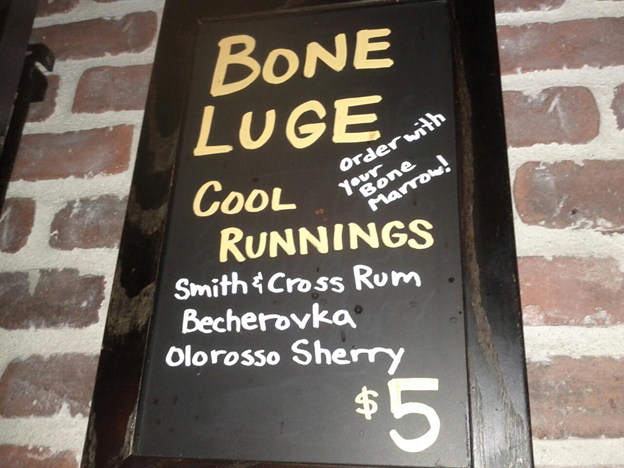 BONE
LUGE
Order with
your
Bone
Marrow!
COOL
RUNNINGS
Smith & Cross Rum
Becherovka
Olorosso Sherry
$5